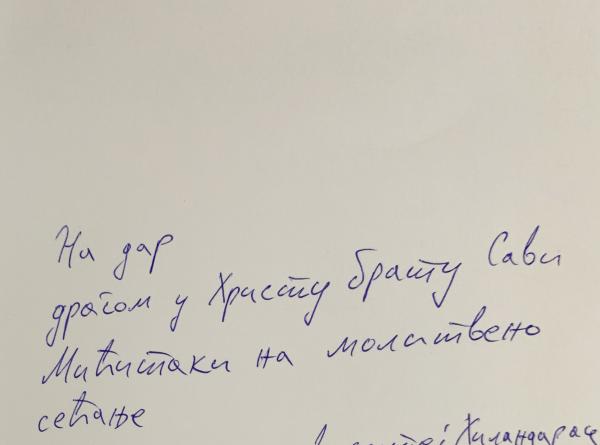 На дар
драгом у Христу брату Сави
на молитвено
сећање
Хиландарац